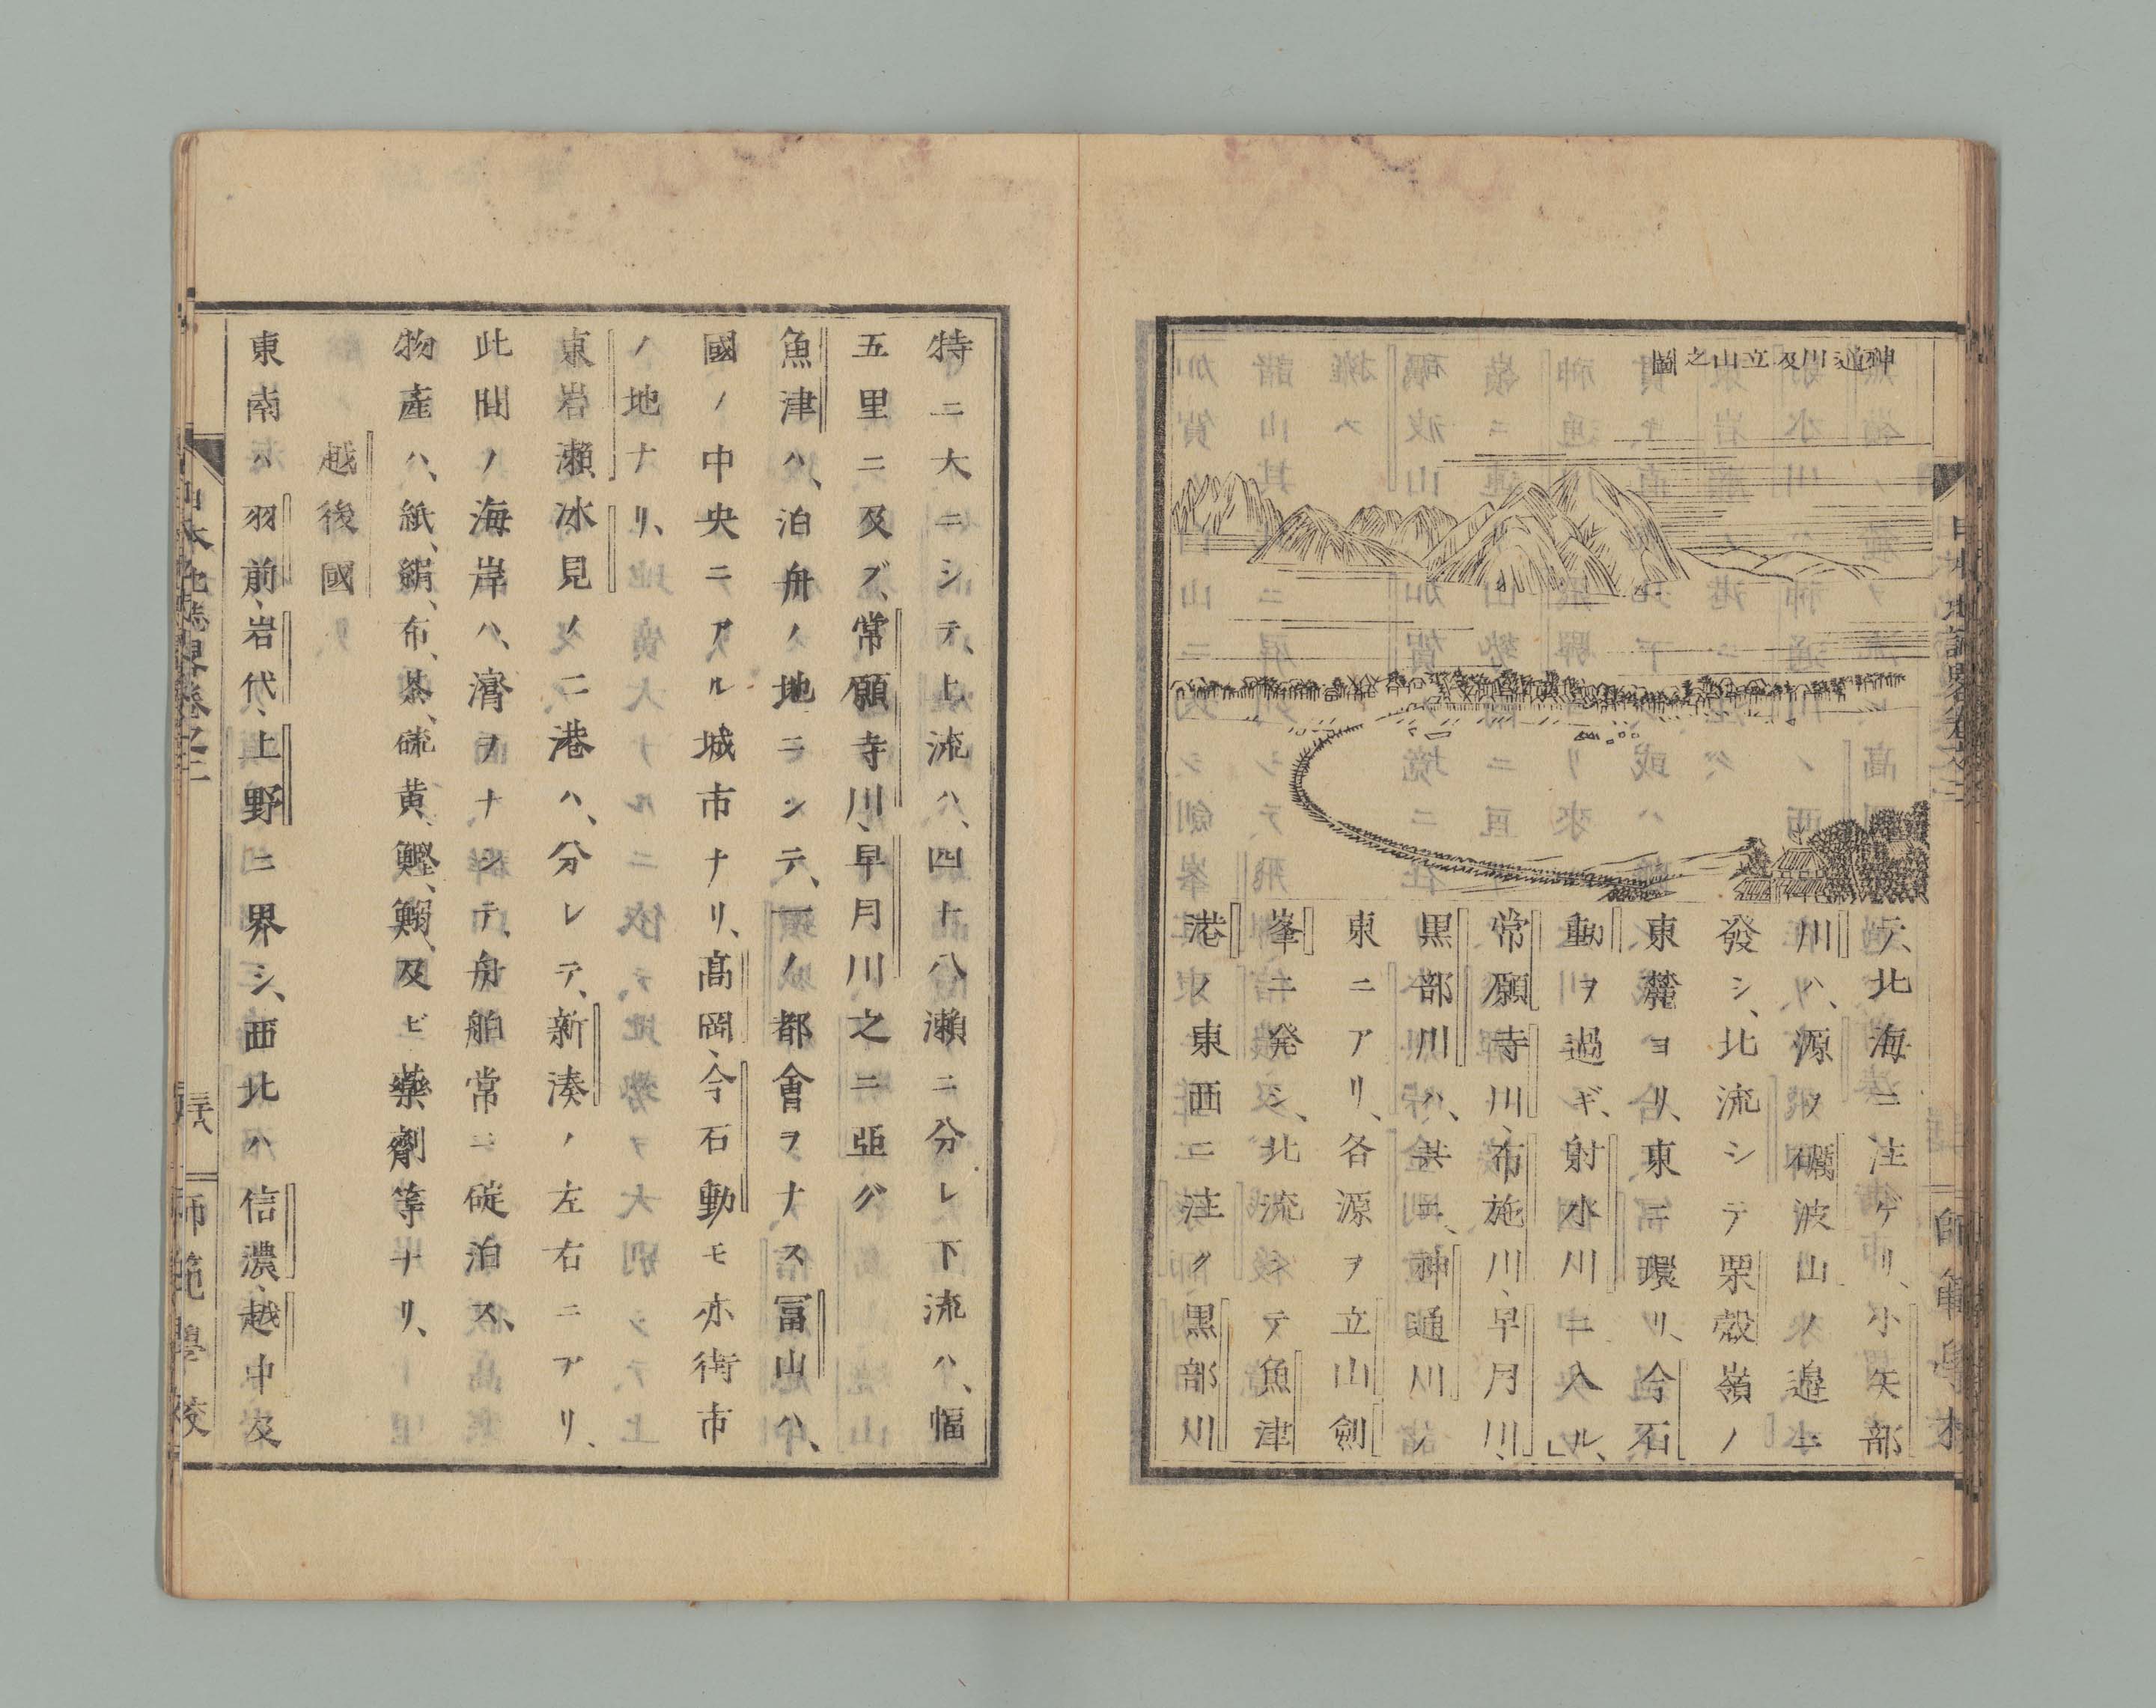 神通川及立山之圖
テ、北海ニ注ゲリ、小矢部
川ハ、源ヲ礪波山ノ邉ニ
發シ、北流シテ栗殻嶺ノ
東麓ヨリ、東ニ環リ、今石
動ヲ過ギ、射水川ニ入ル、
常願寺川、布施川、早月川、
黒部川ハ、共ニ、神通川ノ
東ニアリ、各源ヲ立山劍
峯ニ発シ、北流シテ魚津
港ノ東西ニ注ク黒部川
特ニ大ニシテ、上流ハ、四十八瀬ニ分レ下流ハ、幅
五里ニ及ブ、常願寺川、早月川之ニ亞グ
魚津ハ、泊舟ノ地ニシテ、一ノ都會ヲナス冨山ハ、
國ノ中央ニアル城市ナリ、髙岡、今石動モ亦街市
ノ地ナリ、
東岩瀬氷見ノ二港ハ、分レテ、新湊ノ左右ニアリ、
此間ノ海岸ハ、濟ヲナシテ、舟舶常ニ碇泊ス、
物産ハ、紙、絹、布、茶、硫黄、鰹、鰯、及ビ藥劑等ナリ、
越後國
東南ハ羽前、岩代、上野ニ界シ、西北ハ信濃、越中及
日本地誌畧卷之二
三十八
師範學校